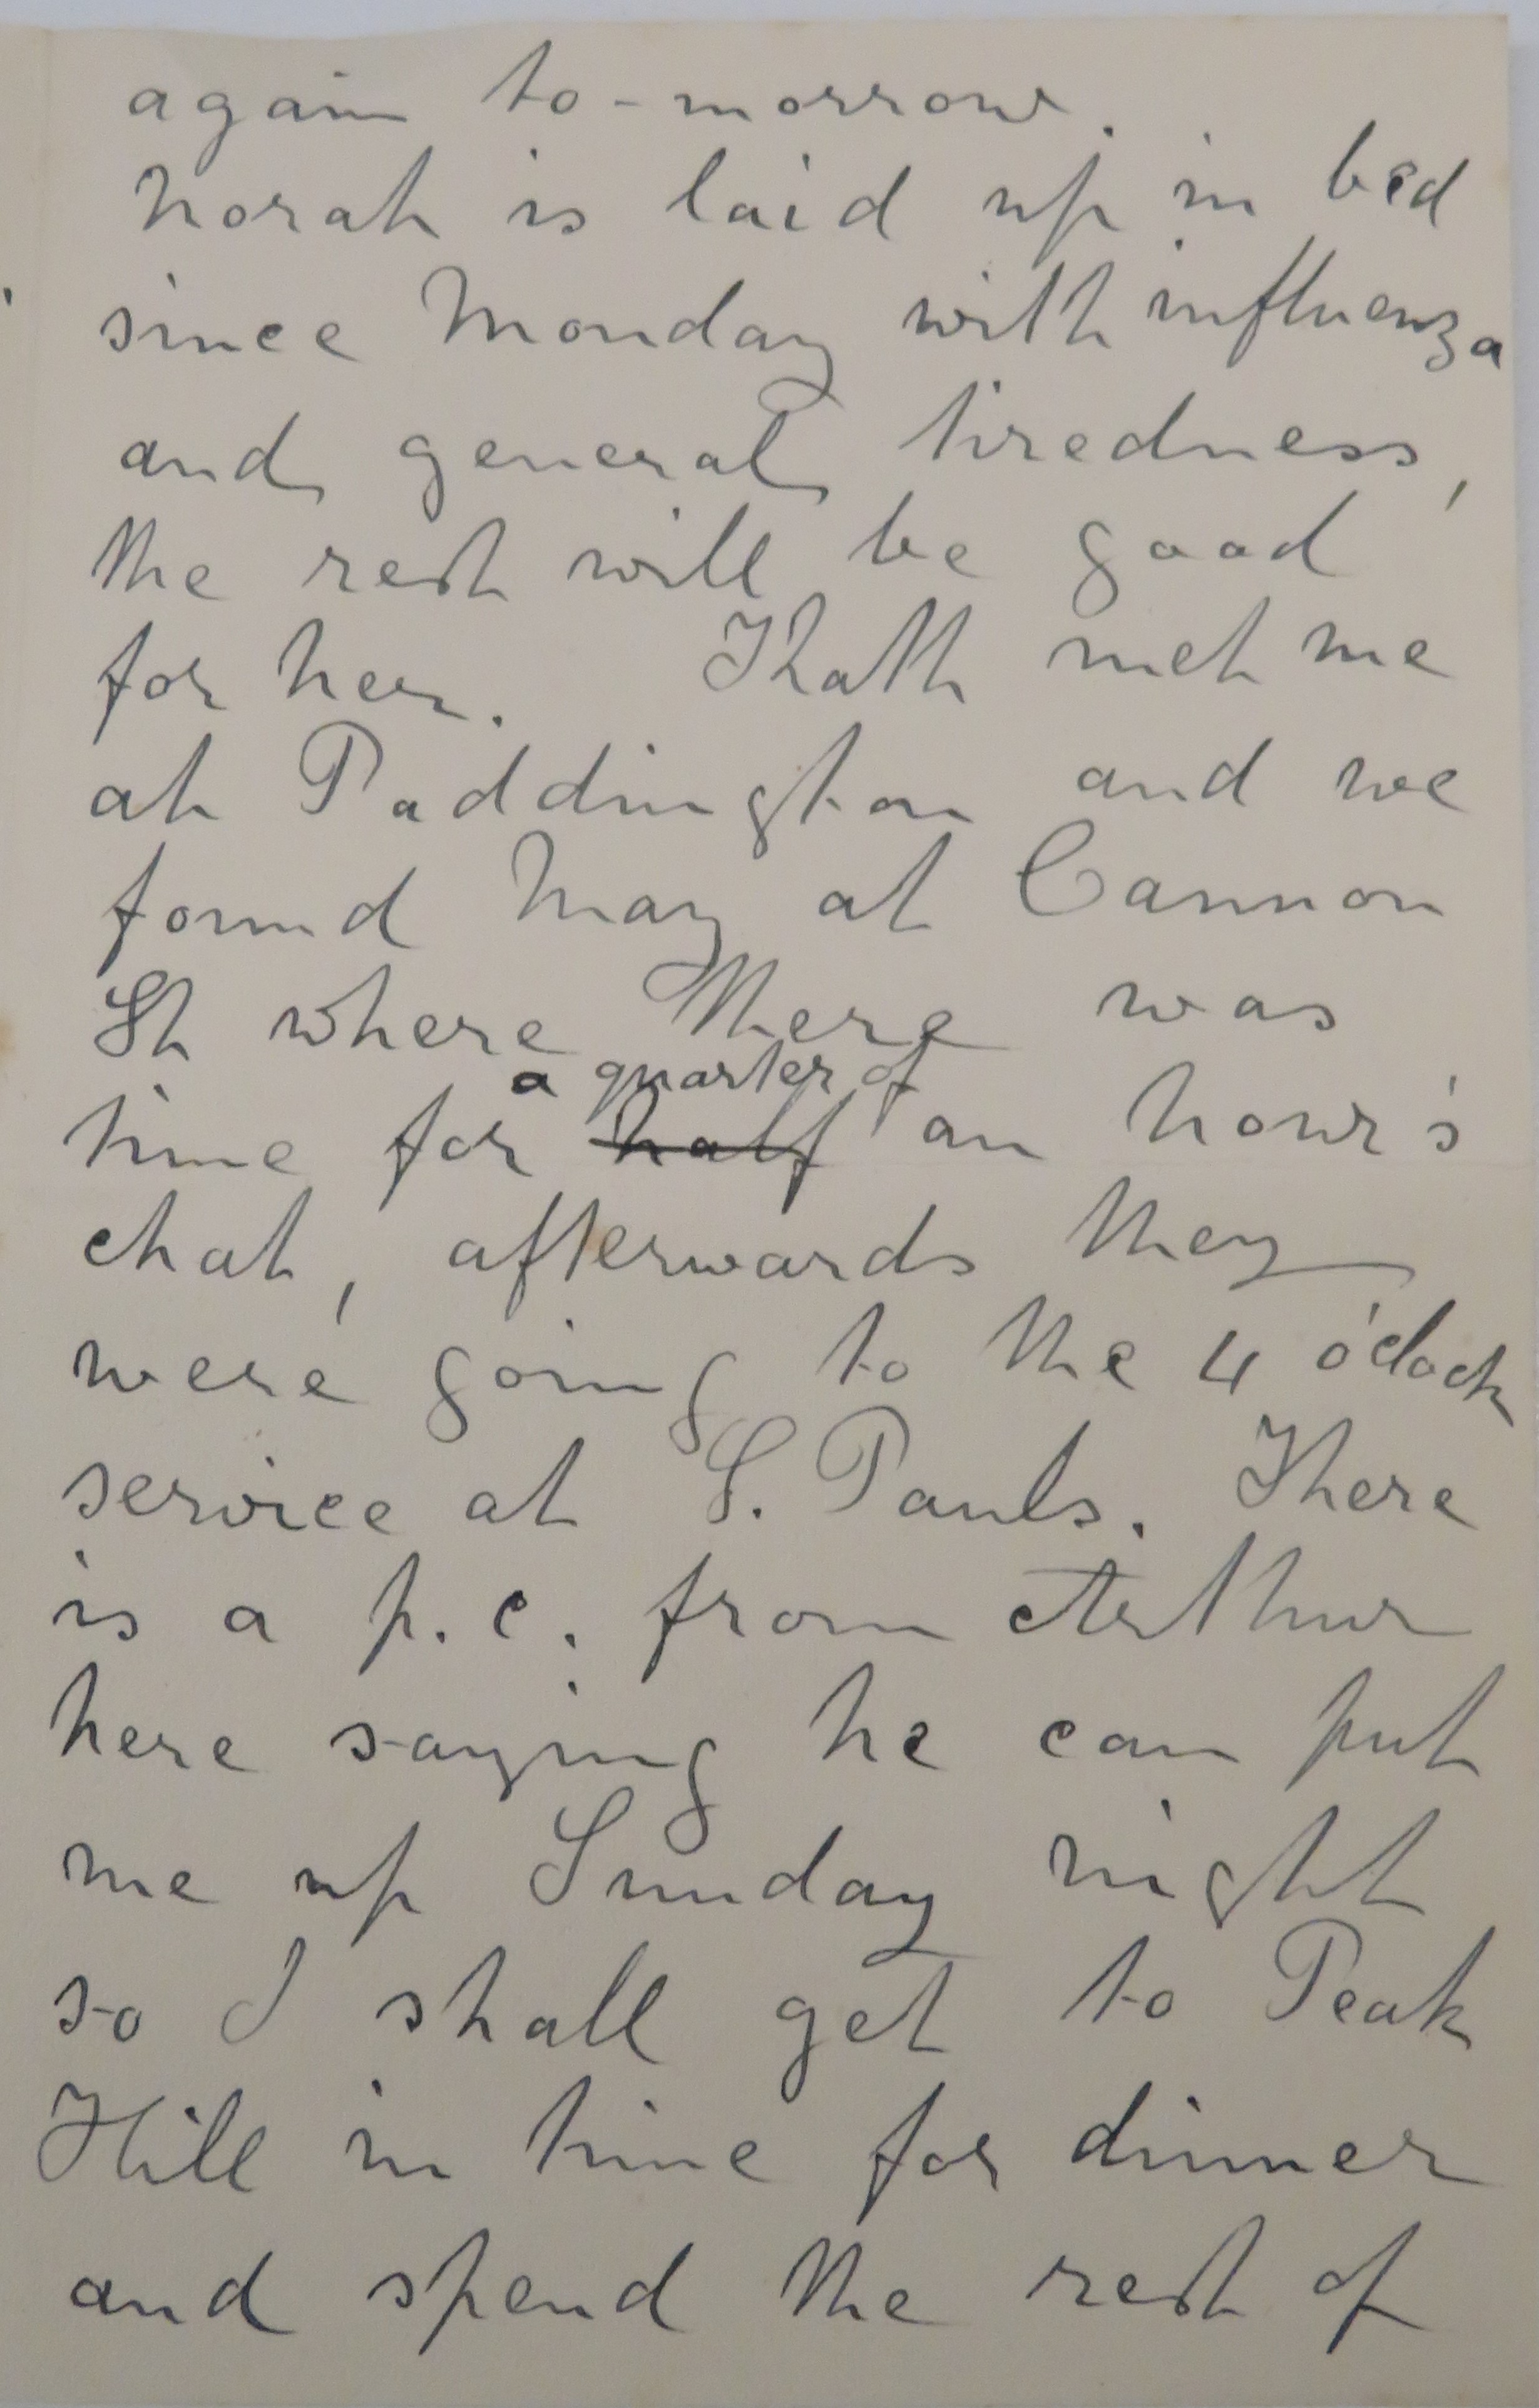 again to-morrow.
Norah is laid up in bed
since Monday with influenza
and general tiredness,
the rest will be good
for her. Kath met me
at Paddington and we
found May at Cannon
St where there was
a quarter of
time for half an hour's
chat, afterwards they
were going to the 4 o'clock
service at S. Pauls. There
is a p.c. from Arthur
here saying he can put
me up Sunday night
so I shall get to Peak
Hill in time for dinner
and spend the rest of